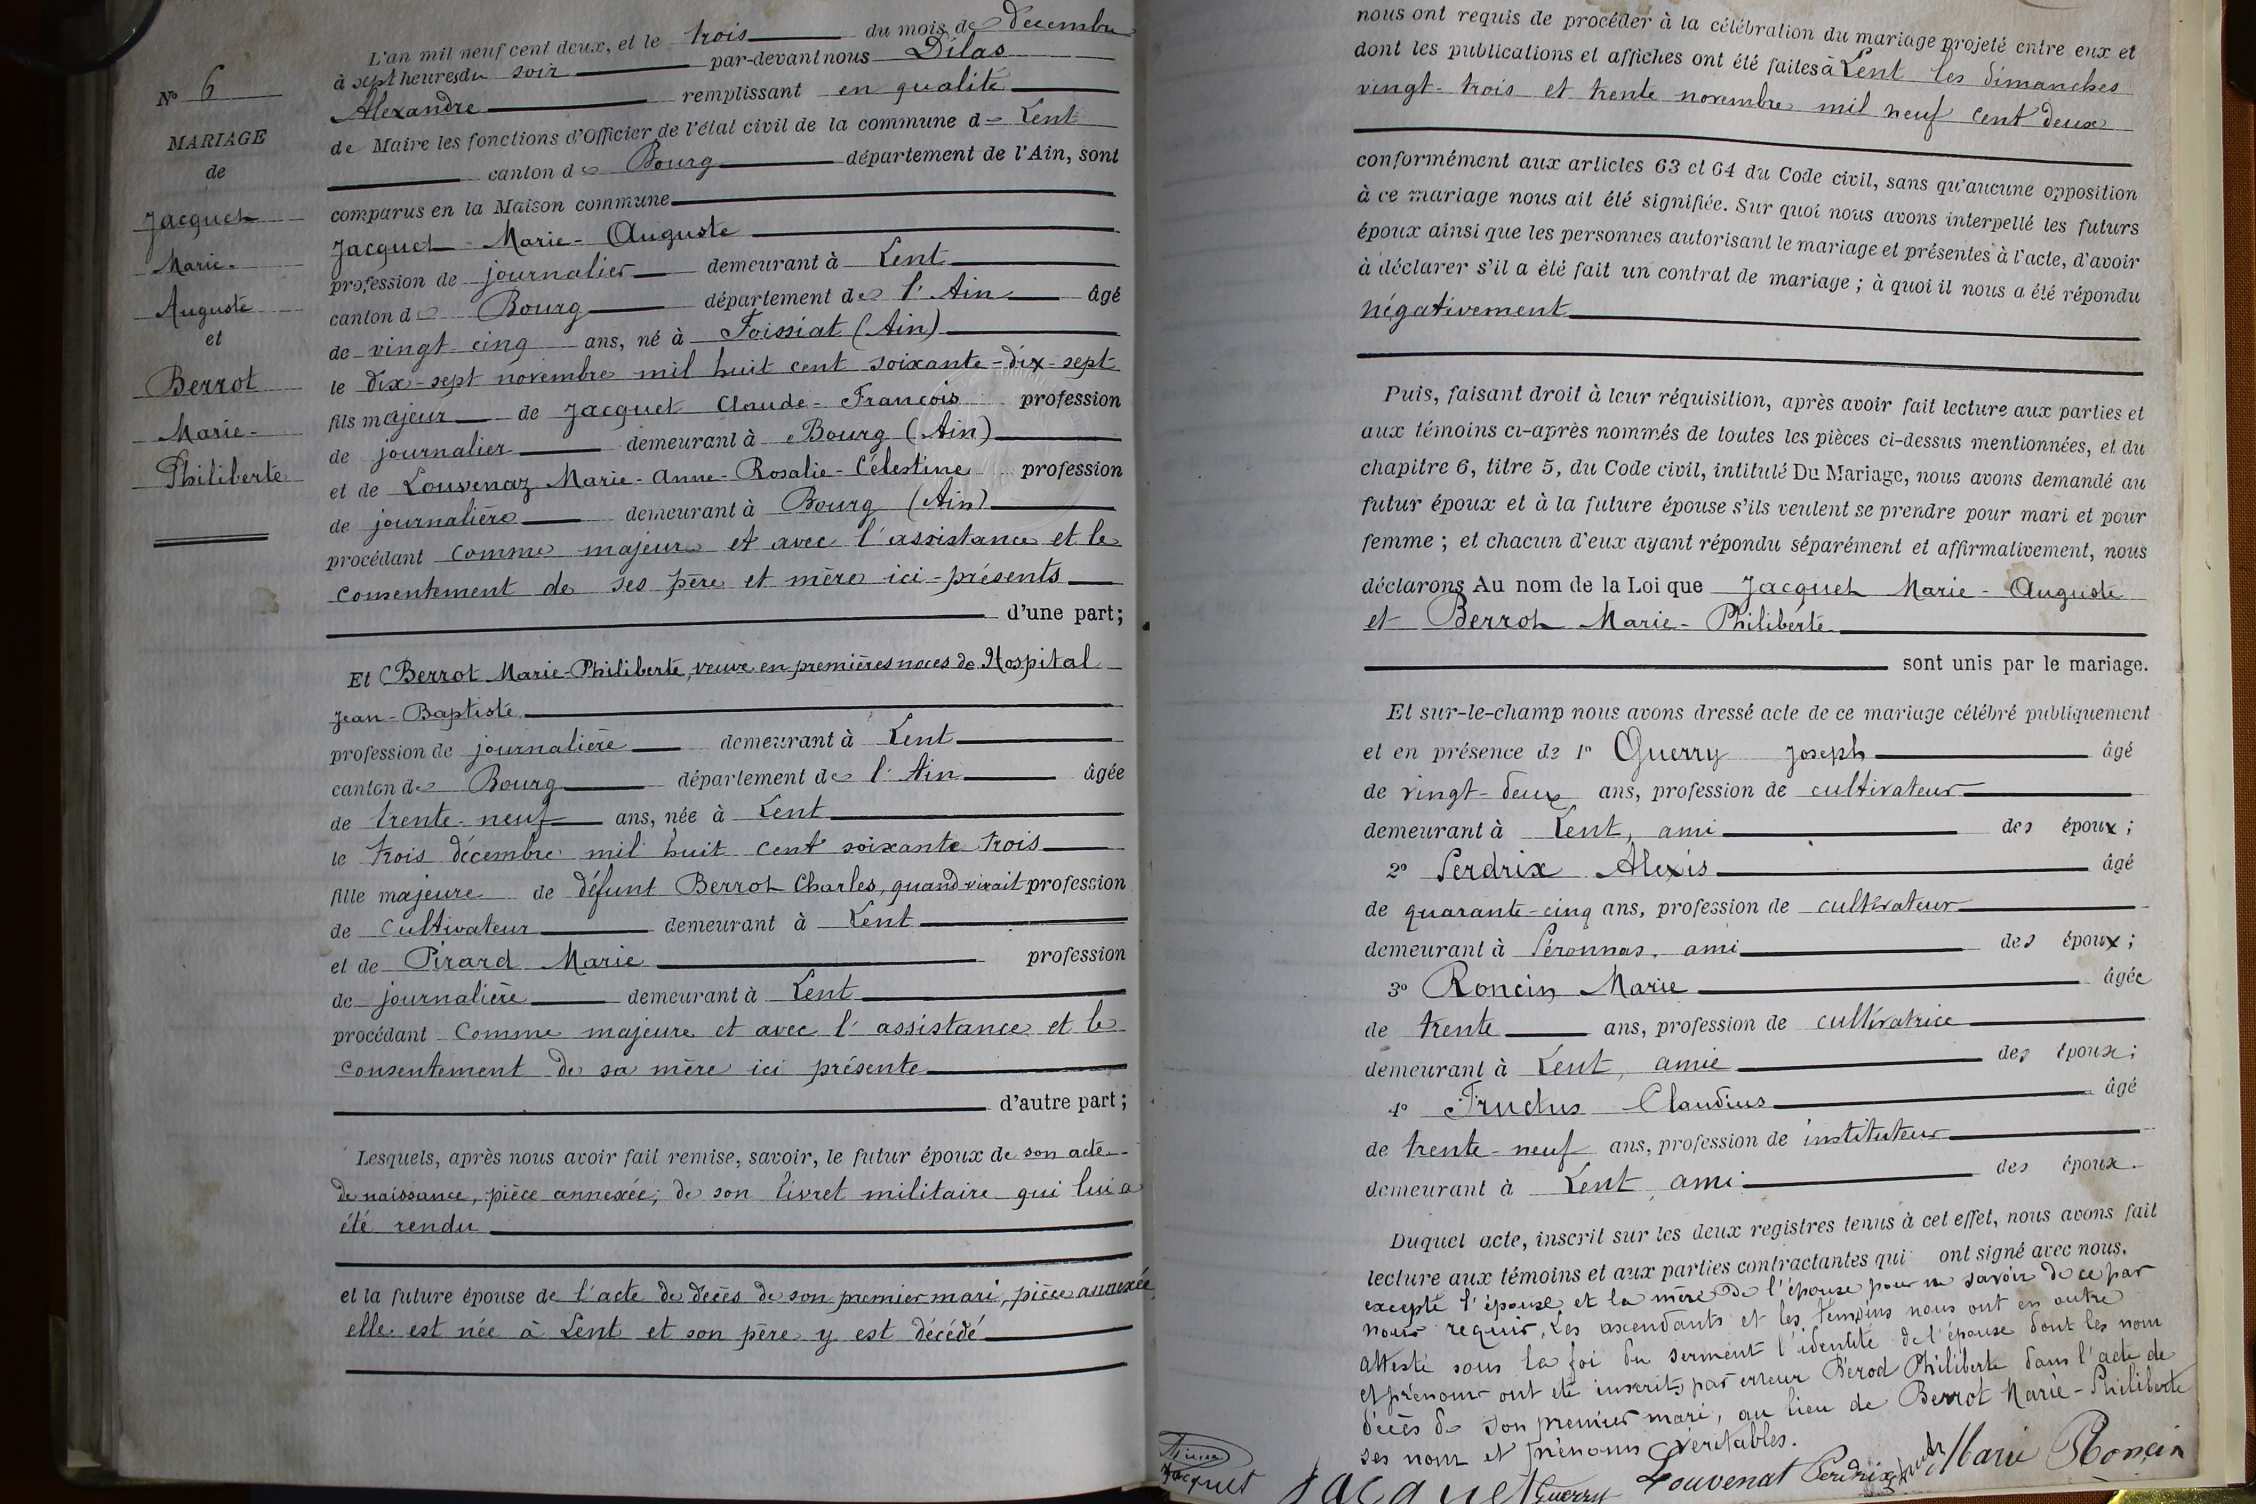 L'an mil neuf cent deux, et le trois du mois de décembre
à sept heures du soir par-devant nous Dilas
Alexandre remplissant en qualité
de Maire les fonctions d'Officier de l'état civil de la commune de Lent
canton de Bourg département de l'Ain, sont
comparus en la Maison commune
Jacquet Marie-Auguste
profession de journalier demeurant à Lent
canton de Bourg département de l'Ain âgé
de vingt cinq ans, né à Foissiat (Ain)
le dix-sept novembre mil huit cent soixante-dix-sept
fils majeur de Jacquet Claude-François profession
de journalier demeurant à Bourg (Ain)
et de Louvenaz Marie-Anne-Rosalie-Célestine profession
de journalière demeurant à Bourg (Ain)
procédant comme majeur et avec l'assistance et le
consentement de ses père et mère ici-présents
d'une part;
Et Berrot Marie-Philiberte, veuve en premières noces de Hospital
Jean-Baptiste
profession de journalière demeurant à Lent
canton de Bourg département de l'Ain âgée
de trente-neuf ans, née à Lent
le trois décembre mil huit cent soixante trois
fille majeure de défunt Berrot Charles, quand vivait profession
de cultivateur demeurant à Lent
et de Pirard Marie profession
de journalière demeurant à Lent
procédant comme majeure et avec l'assistance et le
consentement de sa mère ici présente
d'autre part;
Lesquels, après nous avoir fait remise, savoir, le futur époux de son acte
de naissance, pièce annexée; de son livret militaire qui lui a
été rendu
et la future épouse de l'acte de décès de son premier mari, pièce annexée,
elle est née à Lent et son père y est décédé
N° 6
MARIAGE
de
Jacquet
Marie-
Auguste
et
Berrot
Marie-
Philiberte
nous ont requis de procéder à la célébration du mariage projeté entre eux et
dont les publications et affiches ont été faites à Lent les dimanches
vingt-trois et trente novembre mil neuf cent deux
conformément aux articles 63 et 64 du Code civil, sans qu'aucune opposition
à ce mariage nous ait été signifiée. Sur quoi nous avons interpellé les futurs
époux ainsi que les personnes autorisant le mariage et présentes à l'acte, d'avoir
à déclarer s'il a été fait un contrat de mariage; à quoi il nous a été répondu
négativement
Puis, faisant droit à leur réquisition, après avoir fait lecture aux parties et
aux témoins ci-après nommés de toutes les pièces ci-dessus mentionnées, et du
chapitre 6, titre 5, du Code civil, intitulé Du Mariage, nous avons demandé au
futur époux et à la future épouse s'ils veulent se prendre pour mari et pour
femme; et chacun d'eux ayant répondu séparément et affirmativement, nous
déclarons Au nom de la Loi que Jacquet Marie-Auguste
et Berrot Marie-Philiberte
sont unis par le mariage.
Et sur-le-champ nous avons dressé acte de ce mariage célébré publiquement
et en présence de 1° Guerry Joseph âgé
de vingt-deux ans, profession de cultivateur
demeurant à Lent, ami des époux;
2° Perdrix Alexis âgé
de quarante-cinq ans, profession de cultivateur
demeurant à Péronnas, ami des époux;
3° Roncin Marie âgée
de trente ans, profession de cultivatrice
demeurant à Lent, amie des époux;
4° Fructus Claudius âgé
de trente-neuf ans, profession de instituteur
demeurant à Lent ami des époux.
Duquel acte, inscrit sur les deux registres tenus à cet effet, nous avons fait
lecture aux témoins et aux parties contractantes qui ont signé avec nous,
excepté l'épouse et la mère de l'épouse pour ne savoir de ce par
nous requis. Les ascendants et les témoins nous ont en outre
attesté sous la foi du serment l'identité de l'épouse dont les nom
et prénoms ont été inscrits par erreur Bérod Philiberte dans l'acte de
décès de son premier mari, au lieu de Berrot Marie-Philiberte
ses nom et prénoms véritables.
Jacquet
Jacquet Guerry Louvenat Perdrix Marie Roncin